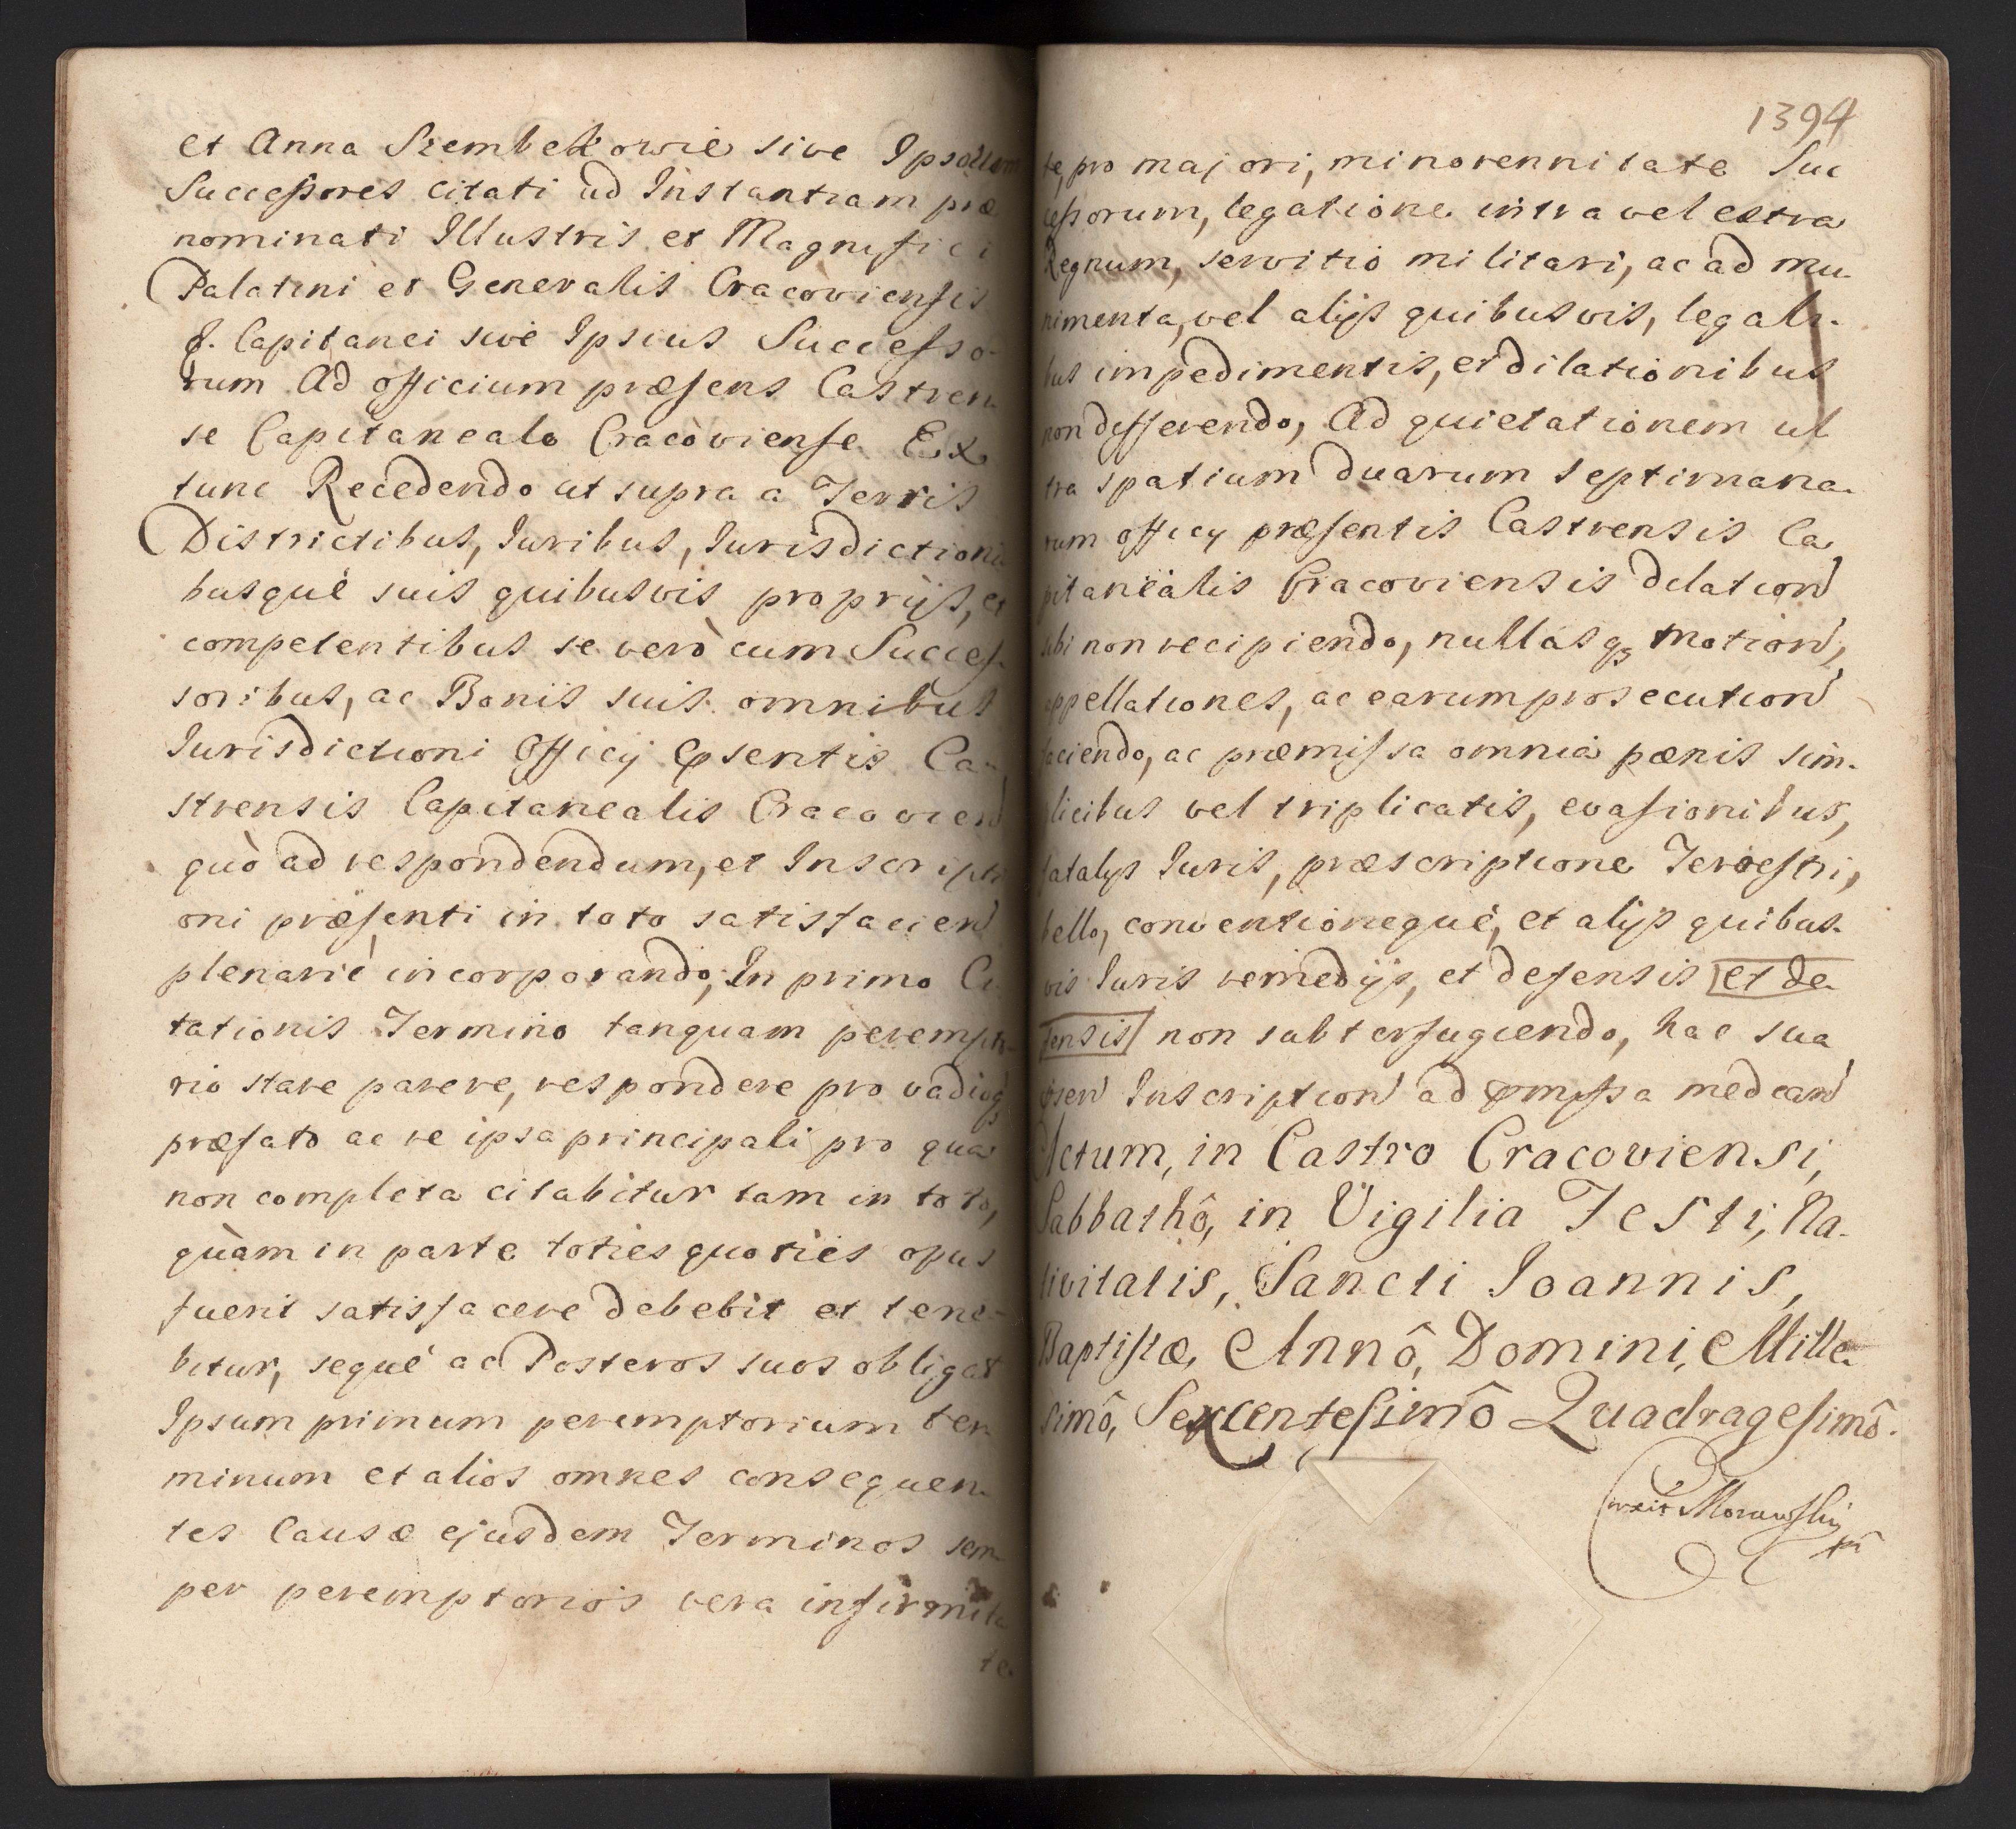 et Anna Szembekowie sive Ipsorum
Successores citati ad Instantiam præ
nominati Illustris et Magnifici
Palatini et Generalis Cracoviensis
g. Capitanei sive Ipsius Successo-
rum Ad officium præsens Castren
se Capitaneale Cracoviense Ex
tunc Recedendo ut supra a Terris
Districtibus, Iuribus, Iurisdictioni
busque suis quibusvis proprijs, et
competentibus se verò cum Succes-
soribus, ac Bonis suis omnibus
Iurisdictioni Officij psentis Ca-
strensis Capitanealis Cracovien
quò ad respondendum, et Inscripti
oni præsenti in toto satisfacien
plenariè incorporando; In primo Ci
tationis Termino tanquam perempto-
rio stare parere, respondere pro vadioq
præfato ac re ipsa principali pro qua
non completa citabitur tam in toto,
quàm in parte toties quoties opus
fuerit satisfacere debebit et tene-
bitur, seque ac Posteros suos obligat
Ipsum primum peremptorium ter
minum et alios omnes consequen-
tes Causæ ejusdem Terminos sem-
per peremptorios vera infirmita
te
1394
te, pro majori, minorennitate Suc
cessorum, legatione intra vel extra
Regnum, servitio militari, ac ad mu-
nimenta, vel alijs quibusvis, legali-
bus impedimentis, et dilationibus
non differendo, Ad quietationem ul
tra spatium duarum septimana-
rum officij præsentis Castrensis Ca
pitanealis Cracoviensis delation
sibi non recipiendo, nullasq3 motion,
appellationes, ac earum prosecution
faciendo, ac præmissa omnia pænis sim-
licibus vel triplicatis, evasionibus,
fatalijs Iuris, præscriptione Terrestri,
bello, conventioneque, et alijs quibus-
vis Iuris remedijs, et defensis et de
fensis non subterfugiendo, hac sua
psen Inscription ad pmissa median
Actum, in Castro Cracoviensi,
Sabbathô, in Vigilia Festi, Na-
tivitatis, Sancti Ioannis,
Baptistæ, Annô, Domini, Mille-
simô, Sexcentesimô Quadragesimô.